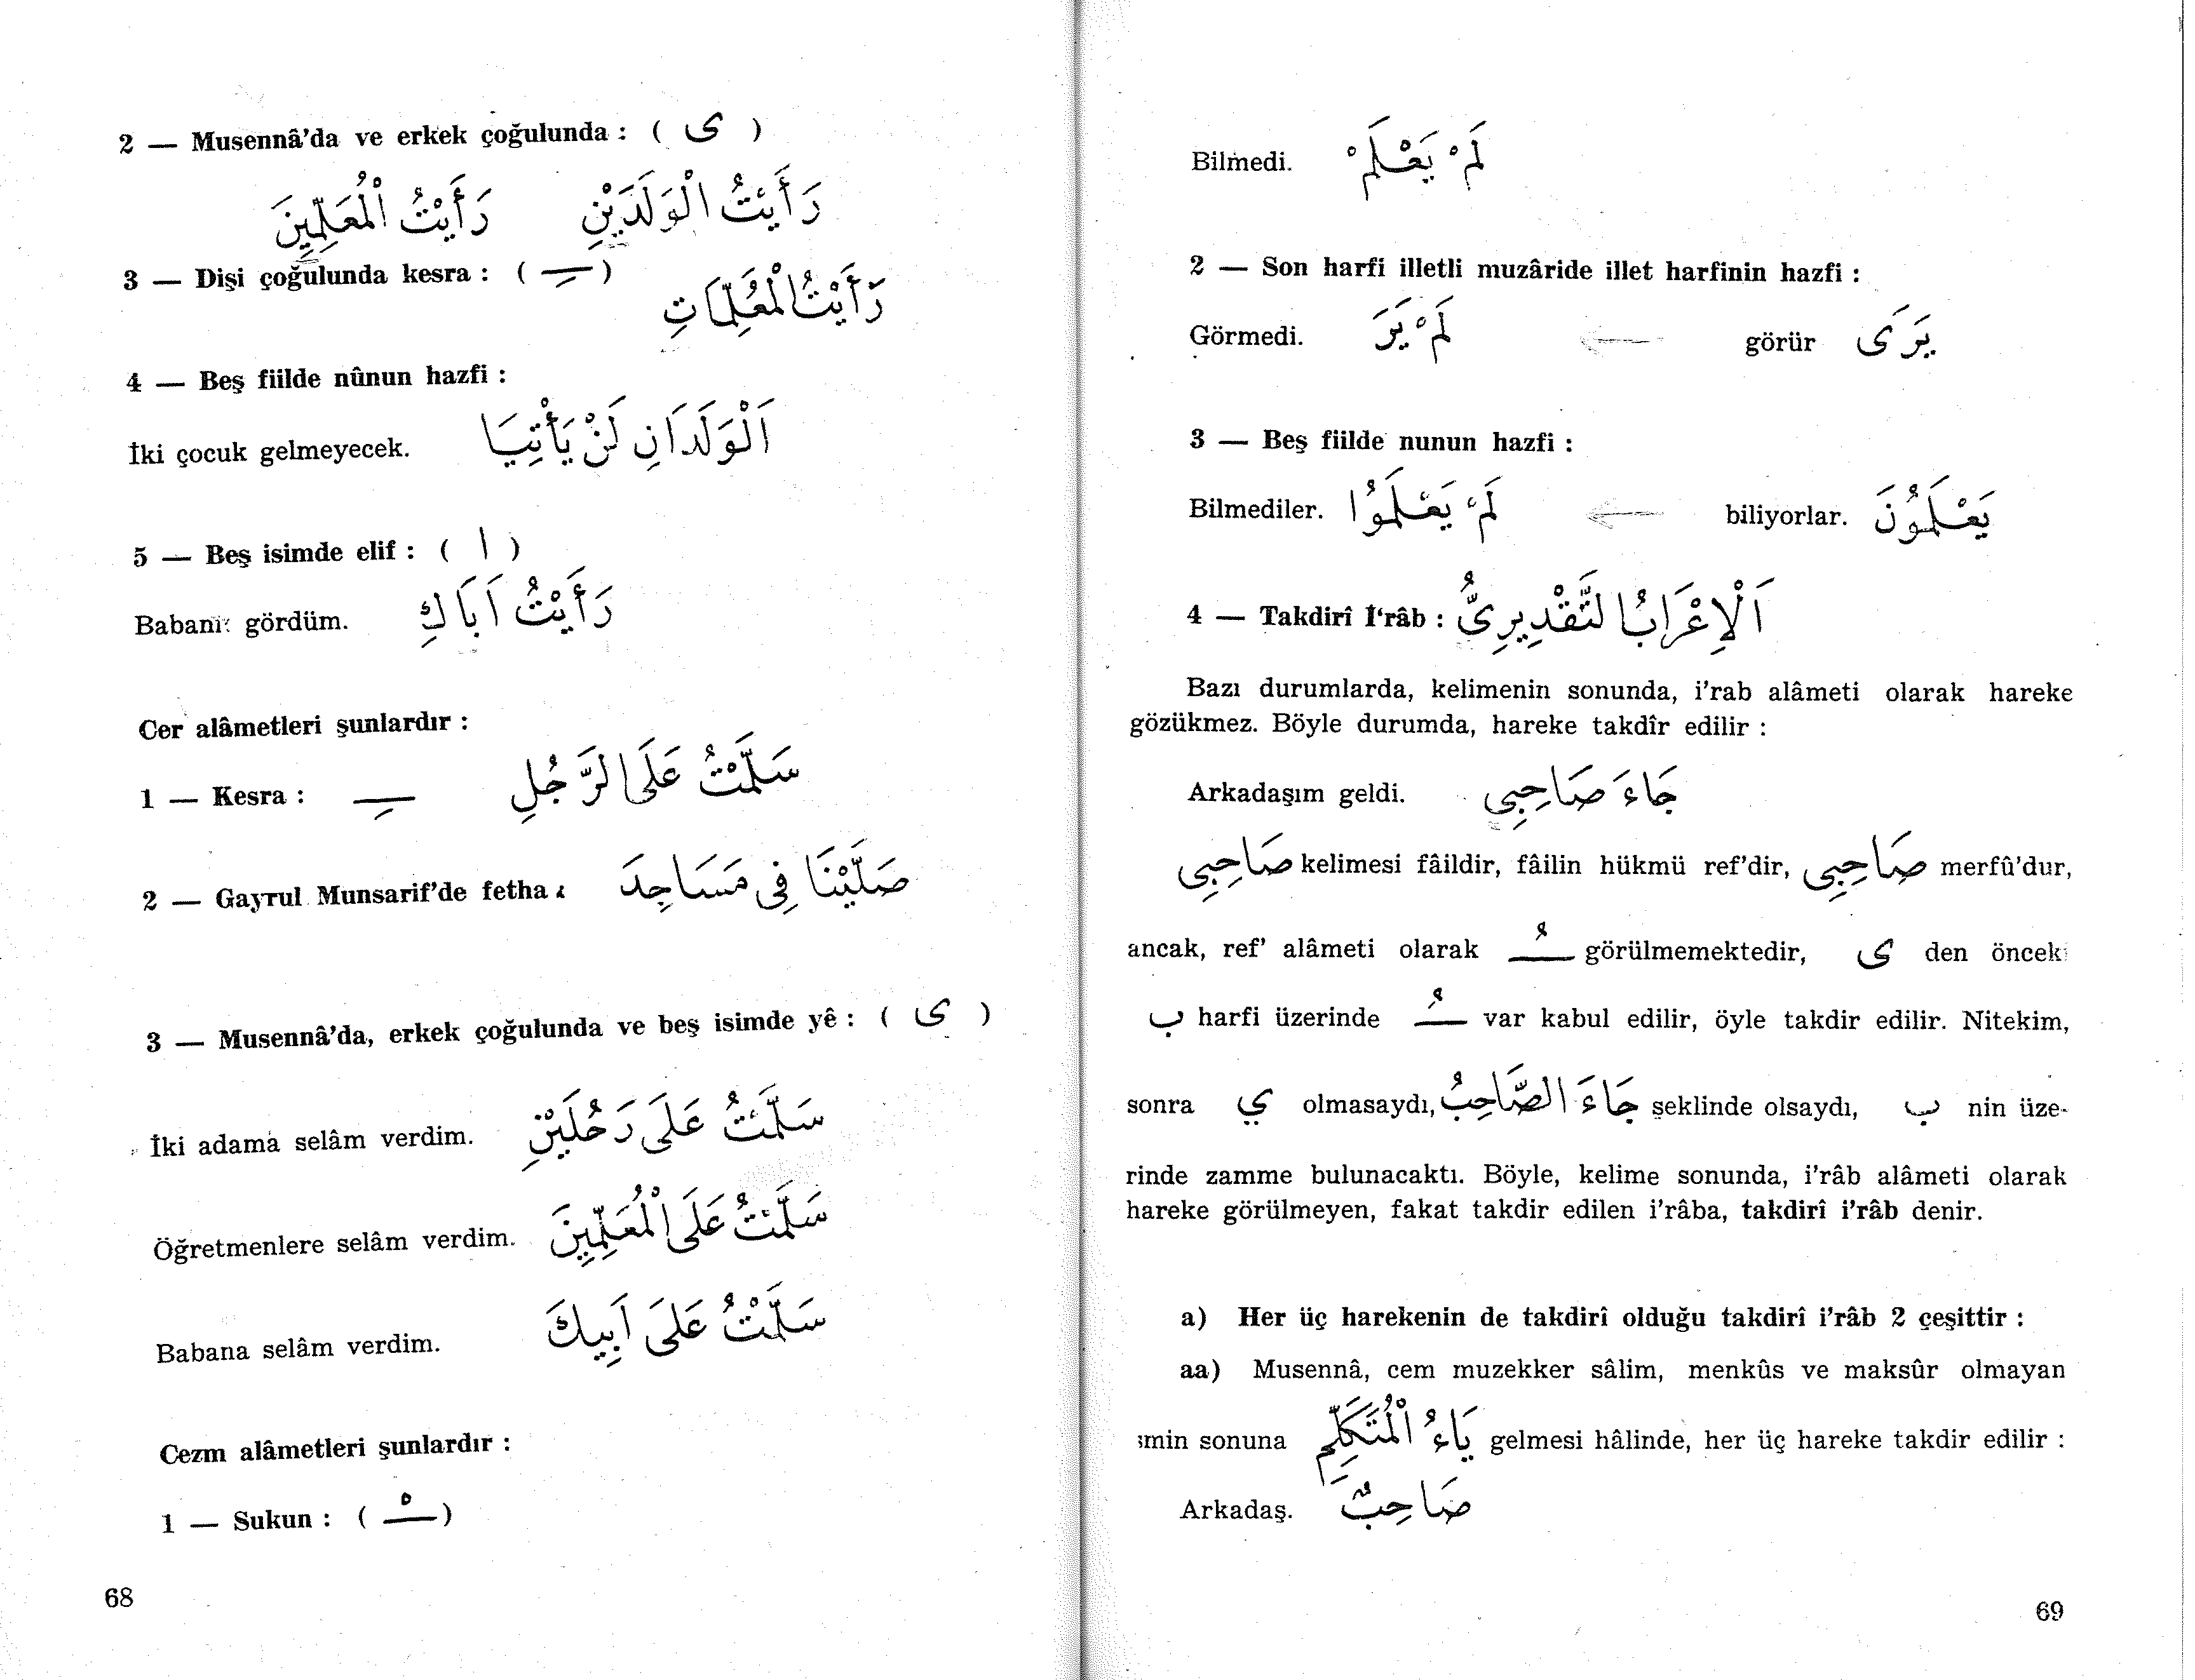 2 — Musennâ'da ve erkek çoğulunda : ( ى )
رَأَيْتُ الْوَلَدَيْنِ رَأَيْتُ الْمُعَلِّمِينَ
3 — Dişi çoğulunda kesra : ( ــِـ )
رَأَيْتُ الْمُعَلِّمَاتِ
4 — Beş fiilde nûnun hazfi :
İki çocuk gelmeyecek. اَلْوَلَدَانِ لَنْ يَأْتِيَا
5 — Beş isimde elif : ( ا )
Babanı gördüm. رَأَيْتُ اَبَاكِ
Cer alâmetleri şunlardır :
1 — Kesra : ــِـ سَلَّمْتُ عَلَى الرَّجُلِ
2 — Gayrul Munsarif'de fetha : صَلَّيْنَا فِى مَسَاجِدَ
3 — Musennâ'da, erkek çoğulunda ve beş isimde yê : ( ى )
İki adama selâm verdim. سَلَّمْتُ عَلَى رَجُلَيْنِ
Öğretmenlere selâm verdim. سَلَّمْتُ عَلَى الْمُعَلِّمِينَ
Babana selâm verdim. سَلَّمْتُ عَلَى اَبِيكَ
Cezm alâmetleri şunlardır :
1 — Sukun : ( ــْـ )
68
Bilmedi. لَمْ يَعْلَمْ
2 — Son harfi illetli muzâride illet harfinin hazfi :
Görmedi. لَمْ يَرَ ← görür يَرَى
3 — Beş fiilde nunun hazfi :
Bilmediler. لَمْ يَعْلَمُوا ← biliyorlar. يَعْلَمُونَ
4 — Takdirî İ'râb : اَلْاِعْرَابُ التَّقْدِيرِىُّ
Bazı durumlarda, kelimenin sonunda, i'rab alâmeti olarak hareke
gözükmez. Böyle durumda, hareke takdîr edilir :
Arkadaşım geldi. جَاءَ صَاحِبِى
صَاحِبِى kelimesi fâildir, fâilin hükmü ref'dir, صَاحِبِى merfû'dur,
ancak, ref' alâmeti olarak ــُـ görülmemektedir, ى den önceki
ب harfi üzerinde ــُـ var kabul edilir, öyle takdir edilir. Nitekim,
sonra ي olmasaydı, جَاءَ الصَّاحِبُ şeklinde olsaydı, ب nin üze-
rinde zamme bulunacaktı. Böyle, kelime sonunda, i'râb alâmeti olarak
hareke görülmeyen, fakat takdir edilen i'râba, takdirî i'râb denir.
a) Her üç harekenin de takdirî olduğu takdirî i'râb 2 çeşittir :
aa) Musennâ, cem muzekker sâlim, menkûs ve maksûr olmayan
ismin sonuna يَاءُ الْمُتَكَلِّمِ gelmesi hâlinde, her üç hareke takdir edilir :
Arkadaş. صَاحِبٌ
69